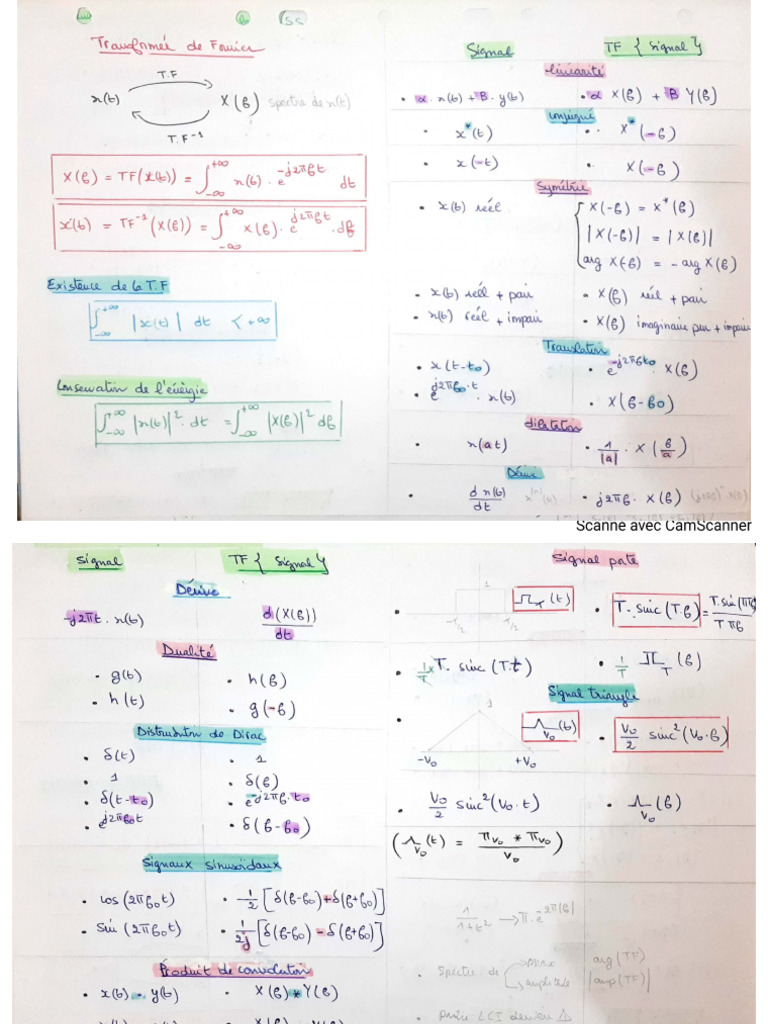 SS
Transformée de Fourier
T.F
x(t) X(f) spectre de x(t)
T.F⁻¹
X(f) = TF(x(t)) = ∫₋∞⁺∞ x(t) · e^(-j2πft) dt
x(t) = TF⁻¹(X(f)) = ∫₋∞⁺∞ X(f) · e^(j2πft) · df
Existence de la T.F
∫₋∞⁺∞ |x(t)| dt < +∞
Conservation de l'énergie
∫₋∞⁺∞ |x(t)|² · dt = ∫₋∞⁺∞ |X(f)|² df
Signal TF { Signal }
linéarité
• α · x(t) + B · y(t) • α X(f) + B Y(f)
conjugué
• x*(t) • X*(-f)
• x(-t) • X(-f)
Symétrie
• x(t) réel { X(-f) = X*(f)
|X(-f)| = |X(f)|
arg X(-f) = - arg X(f)
• x(t) réel + pair • X(f) réel + pair
• x(t) réel + impair • X(f) imaginaire pur + impair
Translation
• x(t-t0) • e^(-j2πft0) · X(f)
• e^(j2πf0·t) · x(t) • X(f-f0)
dilatation
x(at) • 1/|a| · X(f/a)
Dérivé
• d x(t)/dt • j2πf · X(f)
Scanne avec CamScanner
Signal TF { Signal }
Dérivé
-j2πt · x(t) d(X(f))/dt
Dualité
• g(t) • h(f)
• h(t) • g(-f)
Distribution de Dirac
• δ(t) • 1
• 1 • δ(f)
• δ(t-t0) • e^(-j2πf·t0)
• e^(j2πf0t) • δ(f-f0)
Signaux sinusoïdaux
• cos(2πf0t) • 1/2 [δ(f-f0)+δ(f+f0)]
• sin(2πf0t) • 1/2j [δ(f-f0) - δ(f+f0)]
Produit de convolution
• x(t) · y(t) • X(f) * Y(f)
Signal porte
1
-T/2 T/2
• Π_T (t) • T · sinc(T.f) = T.sin(πTf)/Tπf
• 1/T × T · sinc(T.t) • 1/T Π_T (f)
Signal triangle
1
-V0 +V0
• Λ_V0 (t) • V0/2 sinc²(V0·f)
• V0/2 sinc²(V0·t) • Λ_V0 (f)
(Λ_V0 (t) = Π_V0 * Π_V0 / V0)
1/1+t² → π·e^(-2π|f|)
• Spectre de phase arg(TF)
amplitude |amp(TF)|